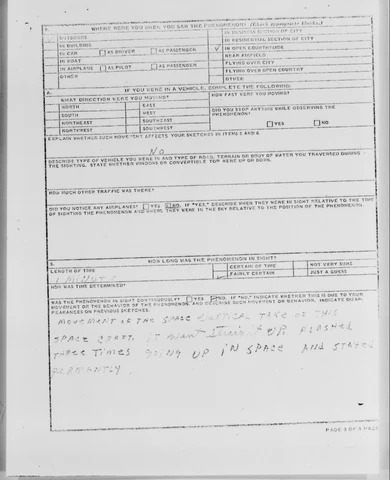 7. WHERE WERE YOU WHEN YOU SAW THE PHENOMENON? (Check appropriate blocks.)
OUTDOORS
IN BUILDING
IN CAR AS DRIVER AS PASSENGER
IN BOAT
IN AIRPLANE AS PILOT AS PASSENGER
OTHER
IN BUSINESS SECTION OF CITY
IN RESIDENTIAL SECTION OF CITY
✓ IN OPEN COUNTRYSIDE
NEAR AIRFIELD
FLYING OVER CITY
FLYING OVER OPEN COUNTRY
OTHER:
A. IF YOU WERE IN A VEHICLE, COMPLETE THE FOLLOWING:
WHAT DIRECTION WERE YOU MOVING?
NORTH EAST
SOUTH WEST
NORTHEAST SOUTHEAST
NORTHWEST SOUTHWEST
HOW FAST WERE YOU MOVING?
DID YOU STOP ANYTIME WHILE OBSERVING THE PHENOMENON?
YES NO
EXPLAIN WHETHER SUCH MOVEMENT AFFECTS YOUR SKETCHES IN ITEMS 2 AND 6.
No
DESCRIBE TYPE OF VEHICLE YOU WERE IN AND TYPE OF ROAD, TERRAIN OR BODY OF WATER YOU TRAVERSED DURING
THE SIGHTING. STATE WHETHER WINDOWS OR CONVERTIBLE TOP WERE UP OR DOWN.
HOW MUCH OTHER TRAFFIC WAS THERE?
DID YOU NOTICE ANY AIRPLANES? YES NO. IF "YES," DESCRIBE WHEN THEY WERE IN SIGHT RELATIVE TO THE TIME
OF SIGHTING THE PHENOMENON AND WHERE THEY WERE IN THE SKY RELATIVE TO THE POSITION OF THE PHENOMENON.
HOW LONG WAS THE PHENOMENON IN SIGHT?
LENGTH OF TIME
CERTAIN OF TIME NOT VERY SURE
FAIRLY CERTAIN JUST A GUESS
HOW WAS THIS DETERMINED?
WAS THE PHENOMENON IN SIGHT CONTINUOUSLY? YES NO. IF "NO," INDICATE WHETHER THIS IS DUE TO YOUR
MOVEMENT OR THE BEHAVIOR OF THE PHENOMENON, AND DESCRIBE SUCH MOVEMENT OR BEHAVIOR. INDICATE
APPEARANCES ON PREVIOUS SKETCHES.
MOVEMENT OF THE SPACE OF THIS
SPACE IT UP FLASHED
THREE TIMES GOING UP IN SPACE AND STAYED